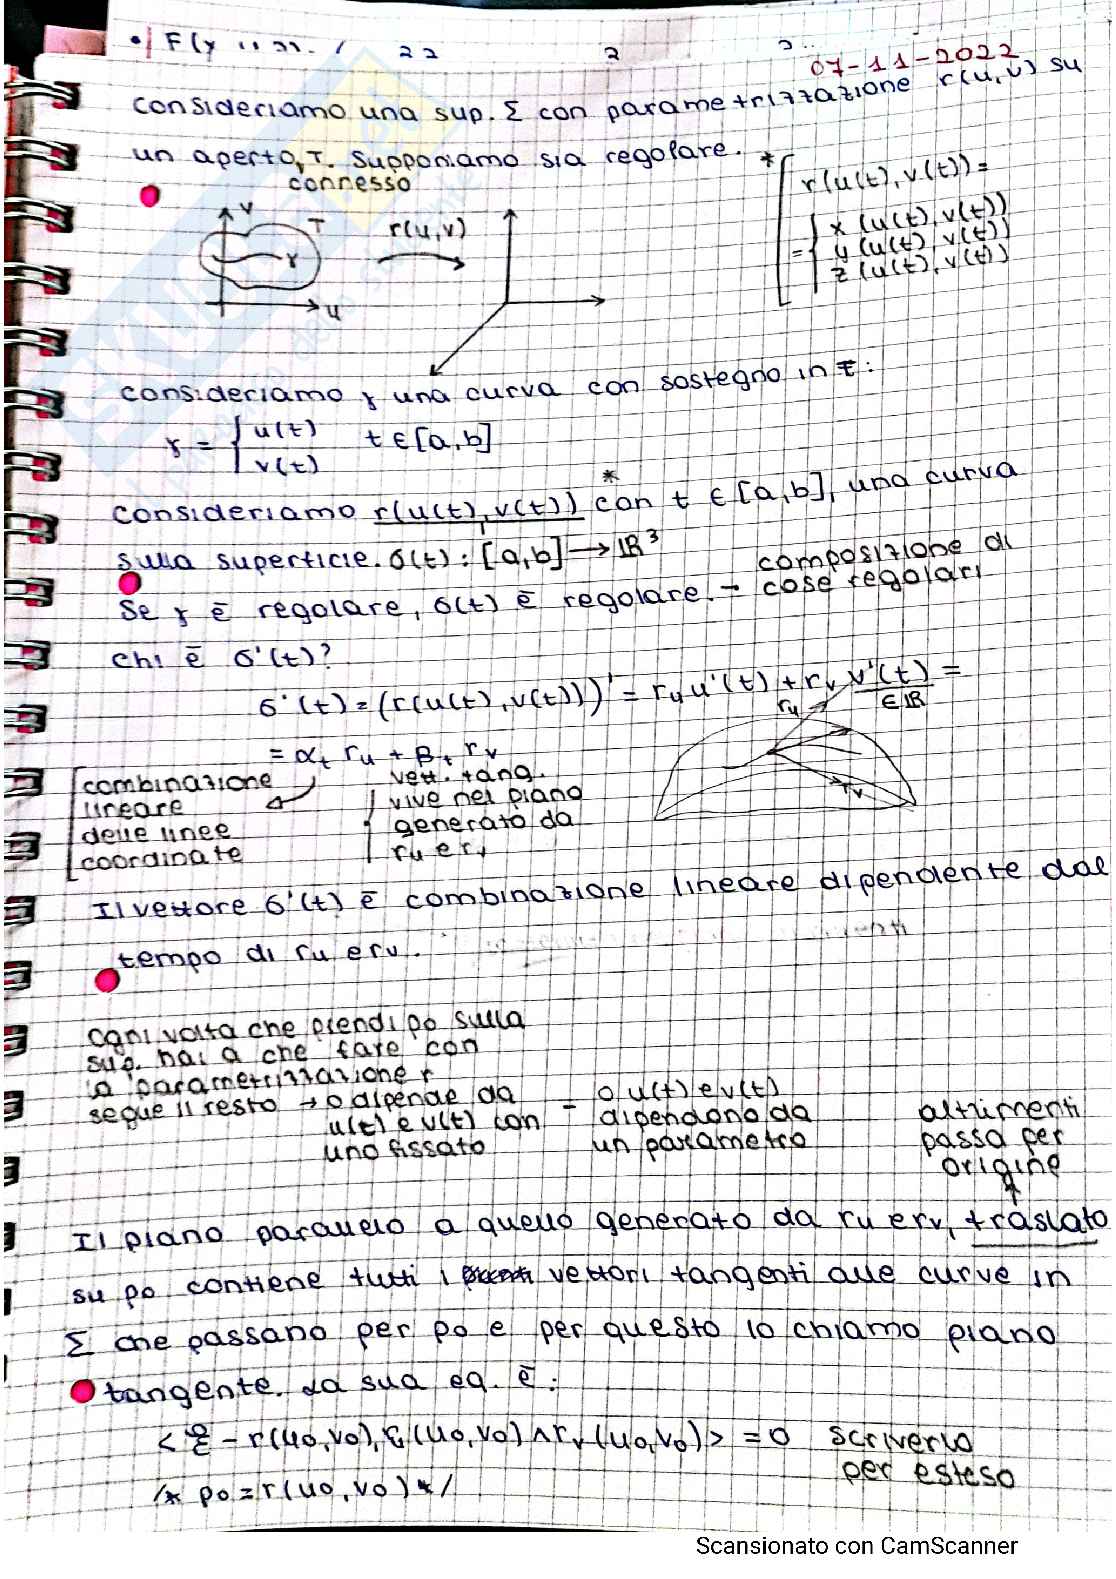 07-11-2022
consideriamo una sup. Σ con parametrizzazione r(u,v) su
un aperto, T. Supponiamo sia regolare. *
connesso
r(u(t), v(t)) =
= { x (u(t), v(t))
y (u(t), v(t))
z (u(t), v(t))
v
T
r(u,v)
γ
u
consideriamo γ una curva con sostegno in T:
γ = { u(t) t ∈ [a,b]
v(t)
*
consideriamo r(u(t), v(t)) con t ∈ [a,b], una curva
sulla superficie. σ(t) : [a,b] → ℝ³
composizione di
Se γ è regolare, σ(t) è regolare. - cose regolari
chi è σ'(t)?
σ'(t) = (r(u(t), v(t)))' = ru u'(t) + rv v'(t) =
∈ ℝ
ru
= αt ru + βt rv
rv
combinazione
lineare
delle linee
coordinate
vett. tang.
vive nel piano
generato da
ru e rv
Il vettore σ'(t) è combinazione lineare dipendente dal
tempo di ru e rv.
ogni volta che prendi po sulla
sup. hai a che fare con
la parametrizzazione r
segue il resto → o dipende da
u(t) e v(t) con
uno fissato
- o u(t) e v(t)
dipendono da
un parametro
altrimenti
passa per
origine
Il piano parallelo a quello generato da ru e rv, traslato
su po contiene tutti i vettori tangenti alle curve in
Σ che passano per po e per questo lo chiamo piano
tangente. La sua eq. è:
< ξ - r(u0,v0), ru(u0,v0) ∧ rv(u0,v0) > = 0 scriverlo
per esteso
/* po = r(u0, v0) */
Scansionato con CamScanner